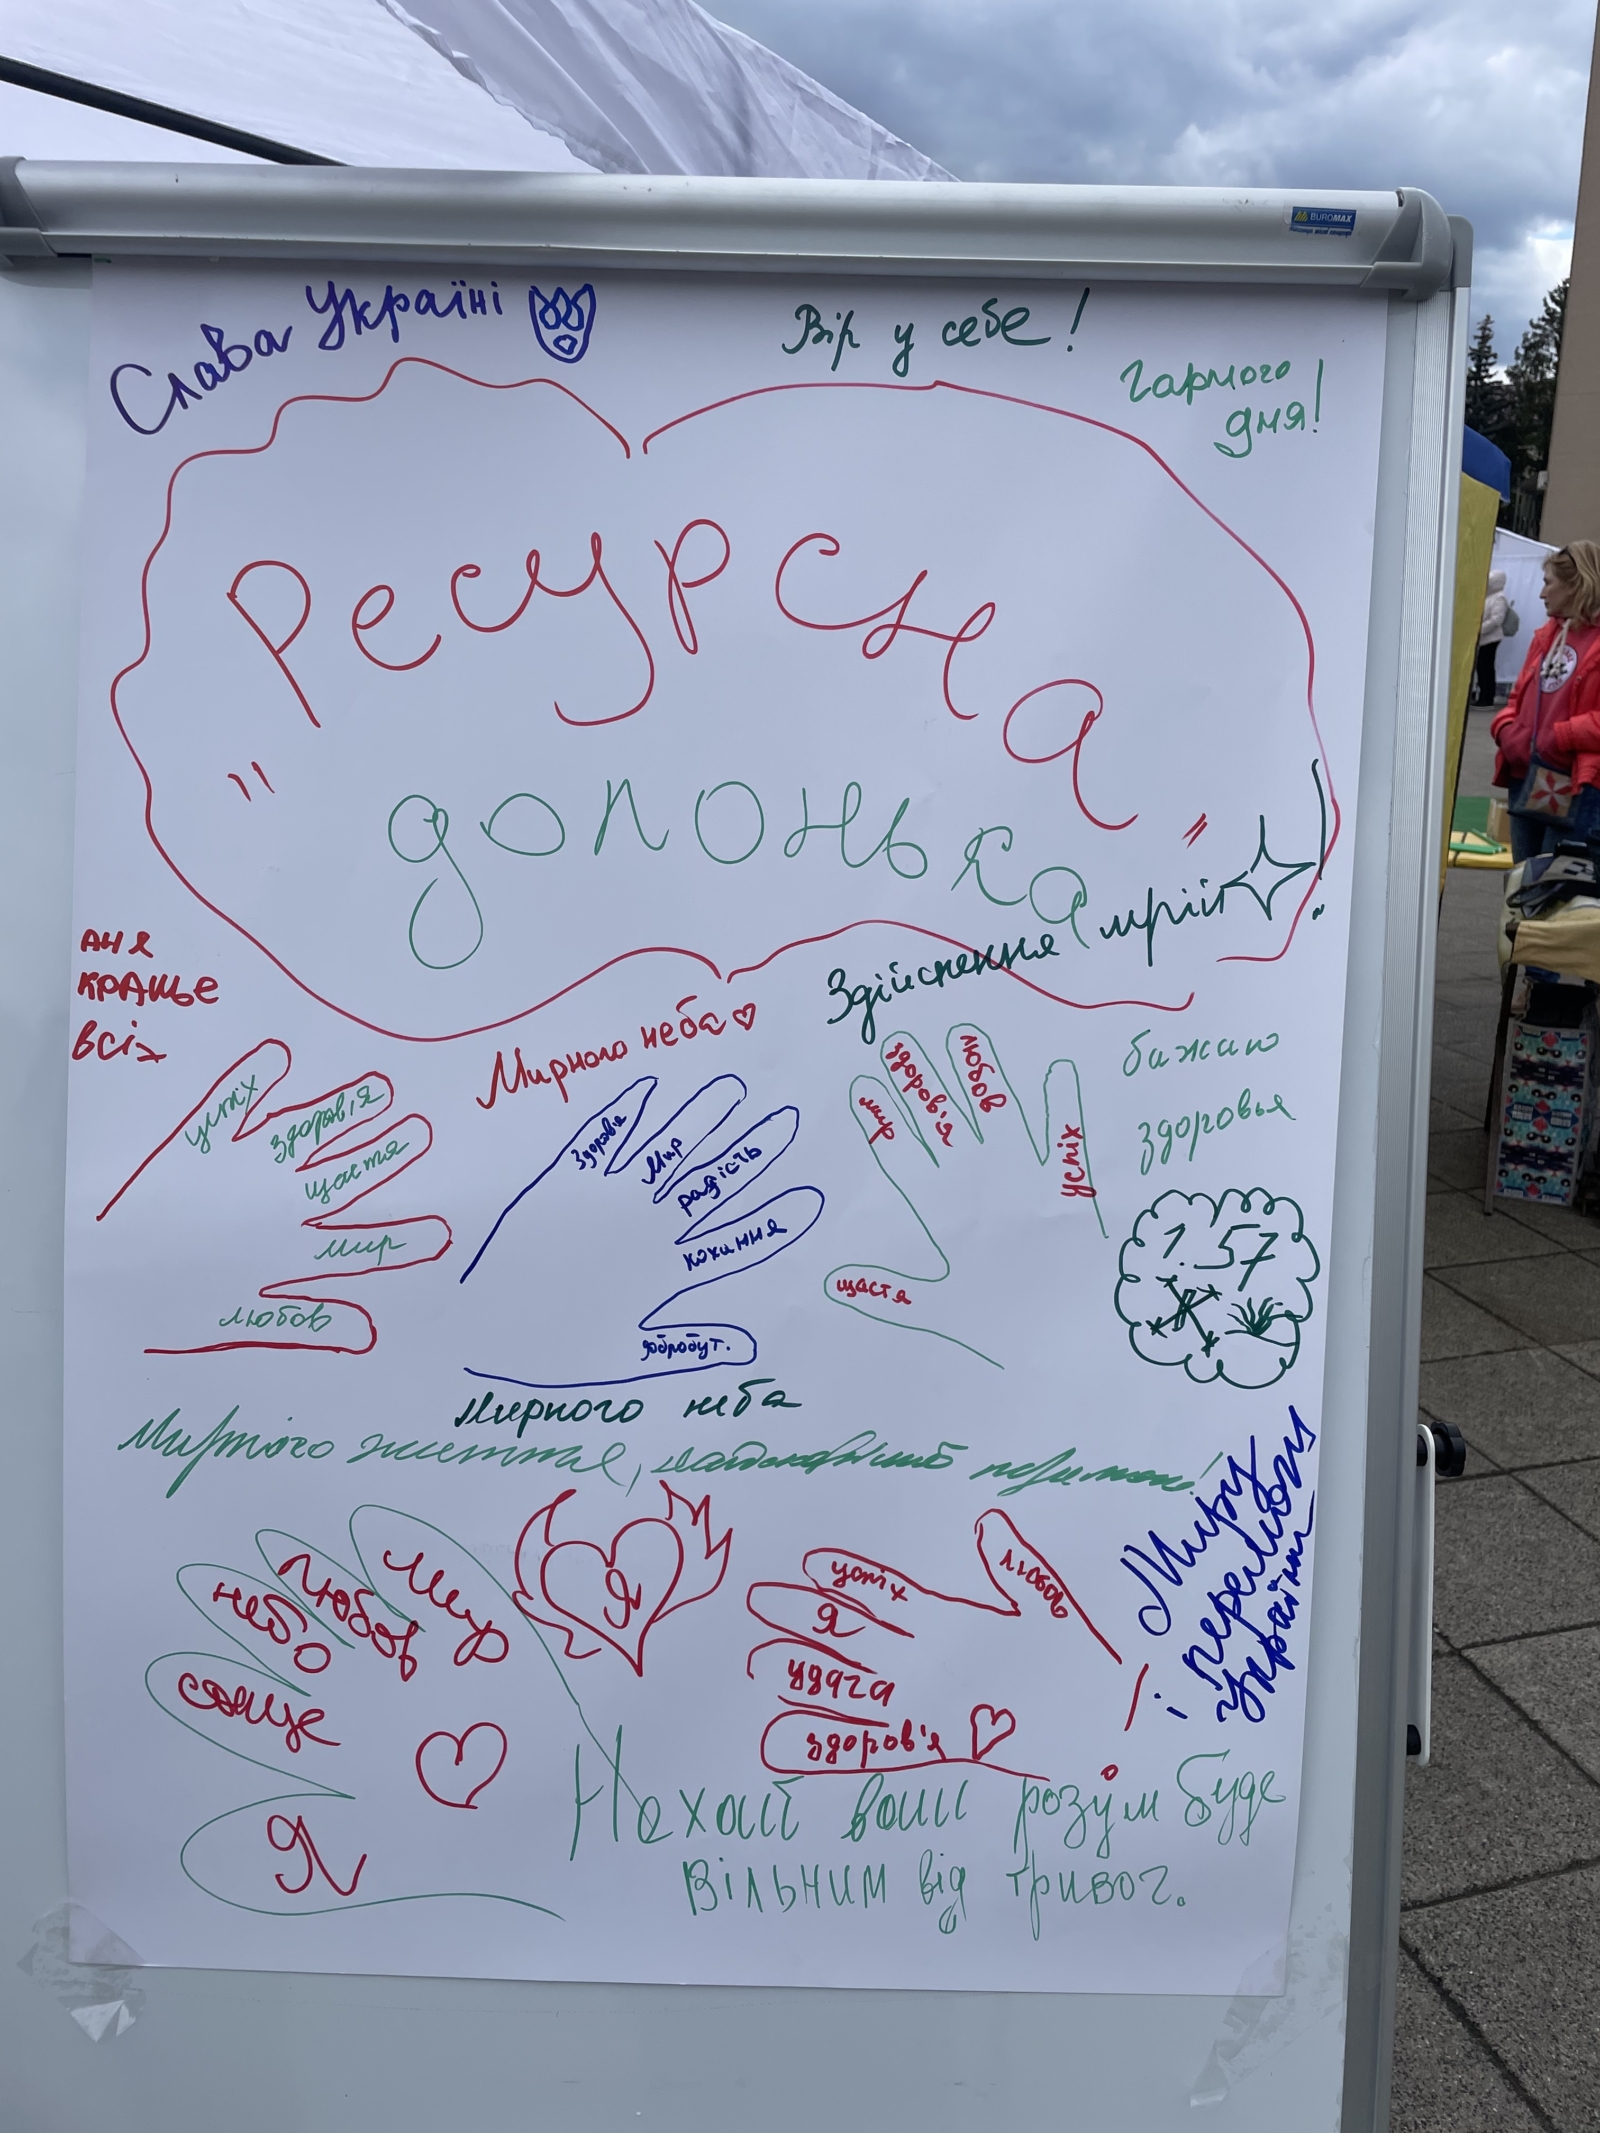 BUROMAX
Слава Україні
Вір у себе!
гарного
дня!
Ресурсна
"долонька"
Здійснення мрій!
аня
краще
всіх
Мирного неба
успіх
здоровія
щастя
мир
любов
здоровіе
мир
радість
кохання
добробут.
мир
здоров'я
любов
успіх
щастя
бажаю
здоровья
1.57
Мирного неба
Мирного життя,
Миру
і перемоги
Україні
мир
любов
небо
сонце
Я
Я
успіх
любов
Я
удача
здоров'я
Нехай ваш розум буде
вільним від тривог.